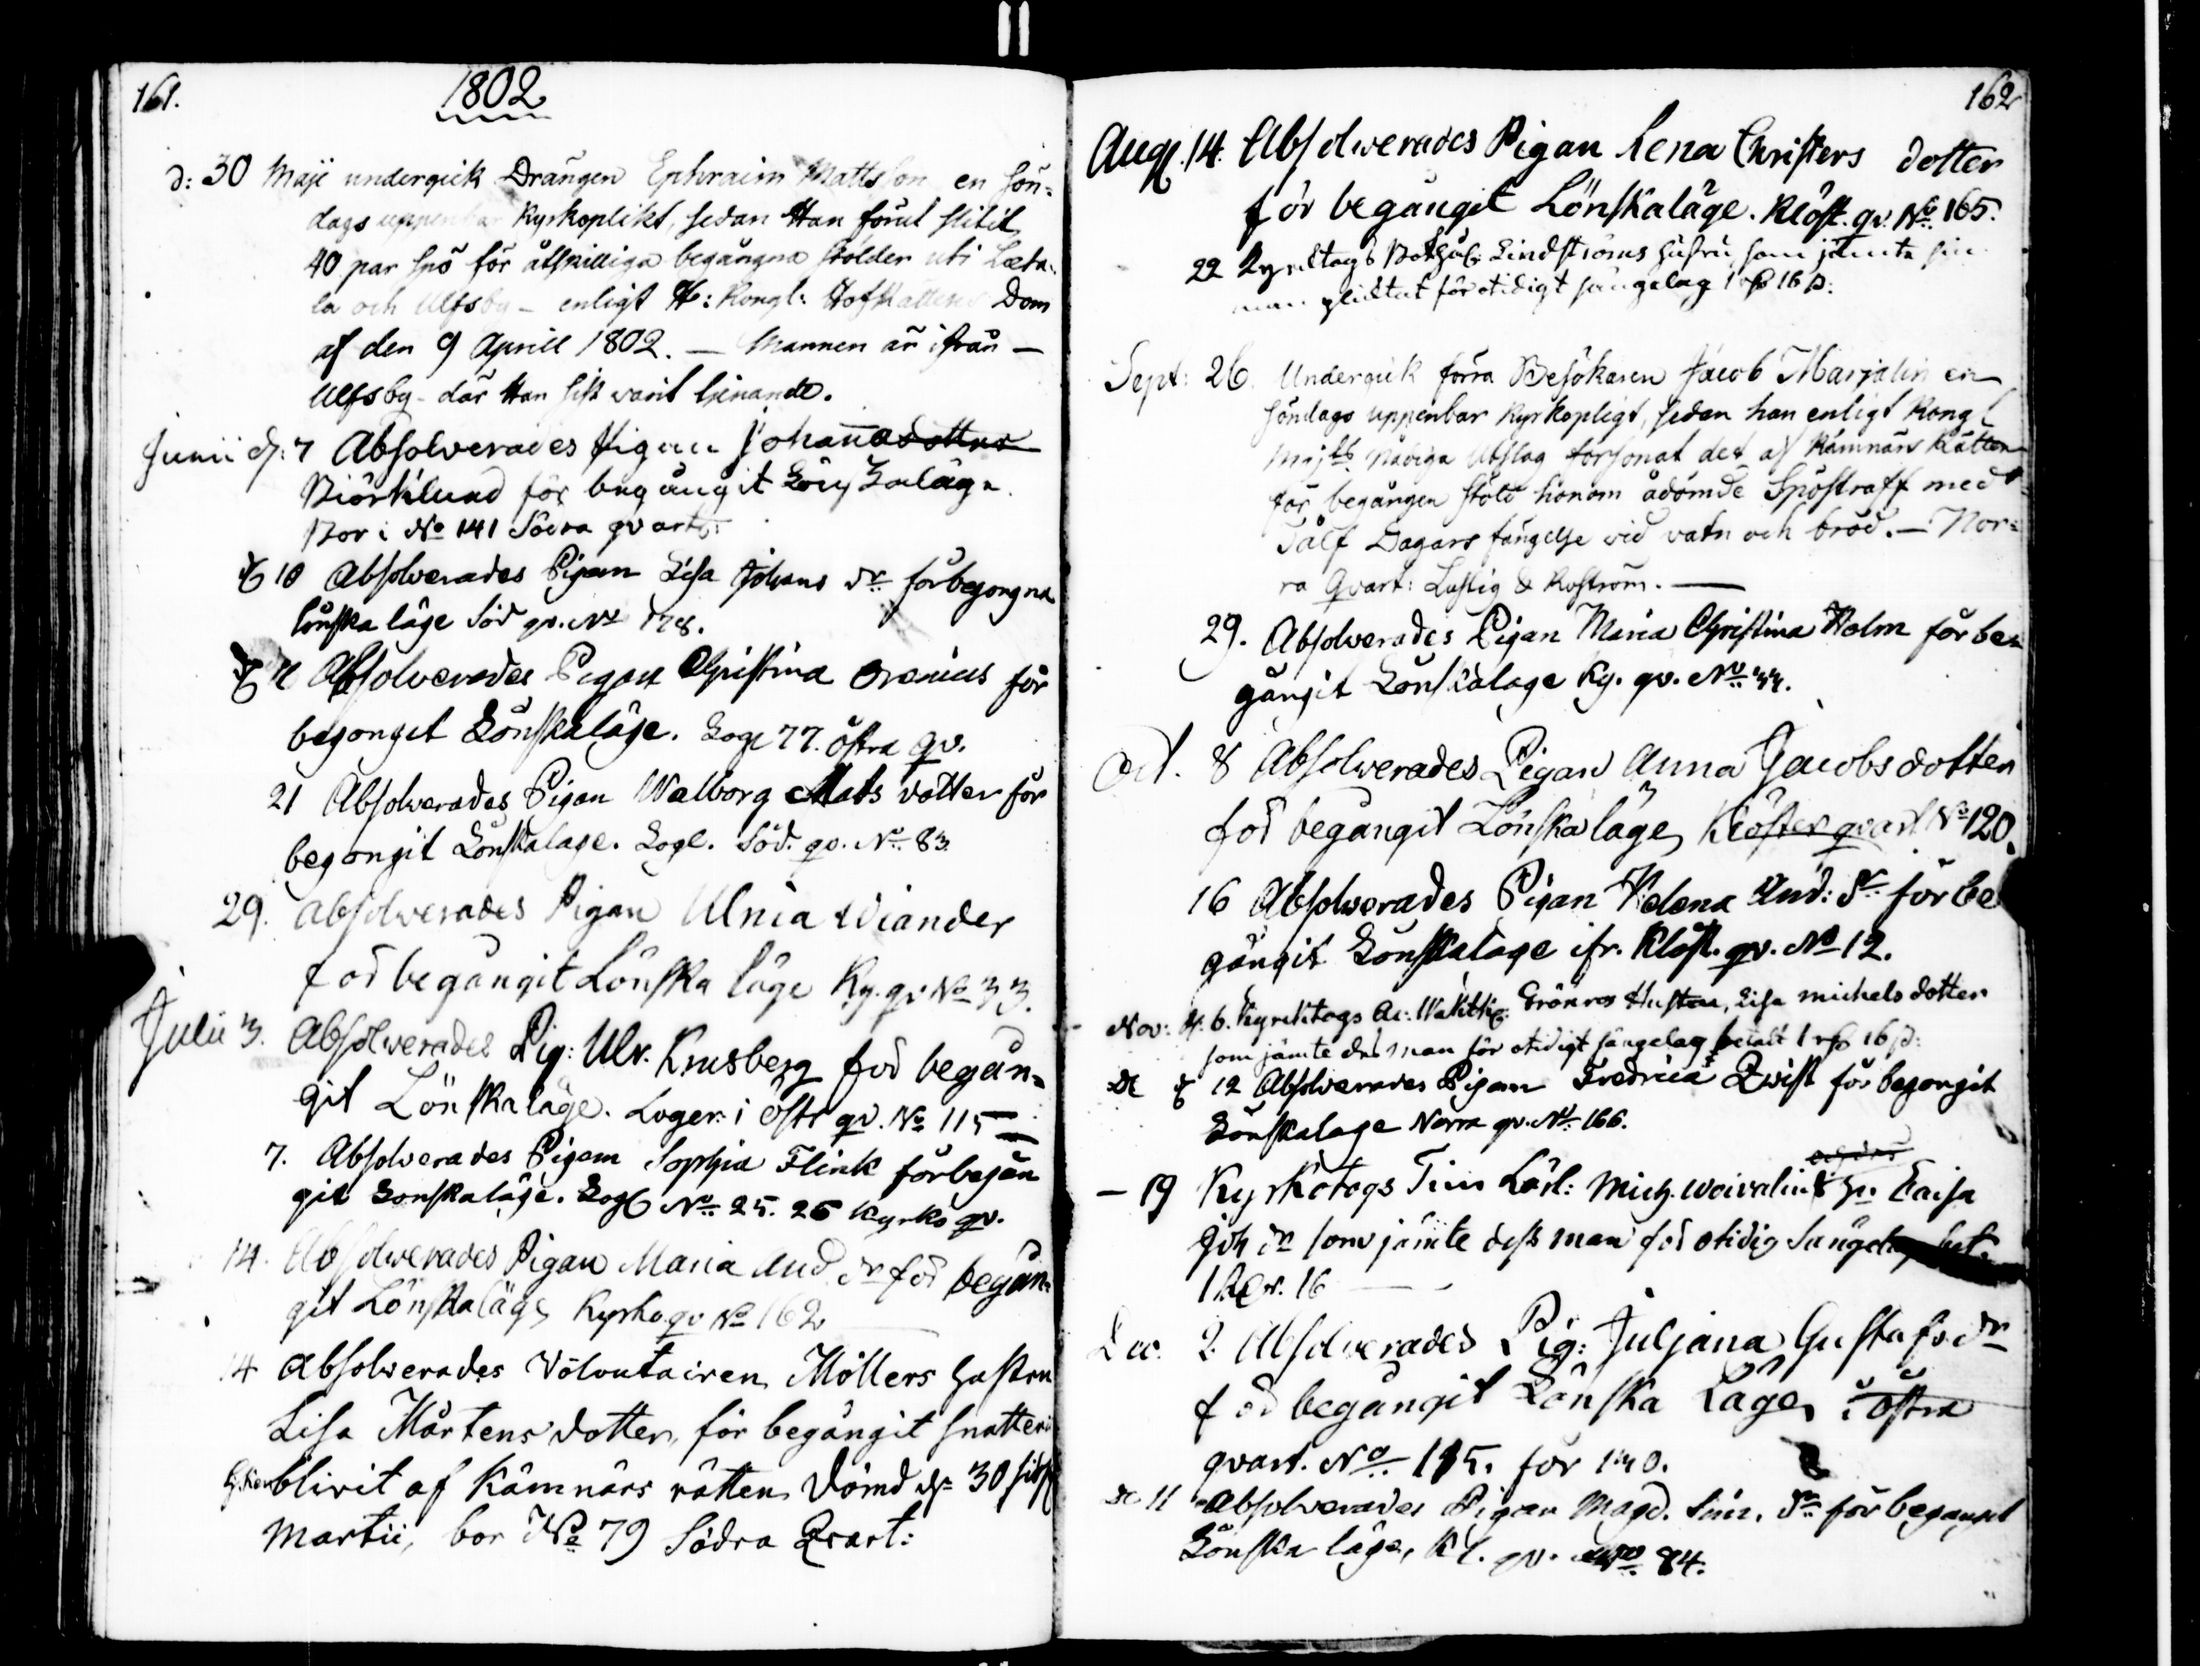 161.
1802
d: 30 Maji undergick Drängen Ephraim Mattsson en sön-
dags uppenbar Kyrkoplikt, sedan Han förut slitit
40 par spö för åtskilliga begångna stölder uti
la och Ulfsby – enligt H: Kongl: HofRättens Dom
af den 9 Aprill 1802. — Mannen är ifrån —
Ulfsby – där Han sist warit tjenande.
Junii d: 7 Absolverades Pigan Johannasdotter
Biörklund för begångit Lönskaläge
Bor i No 141 Södra qvart:
10 Absolverades Pigan Lisa Johans dr för begongna
lönska läge Söd qv. No 178.
Absolverades Pigan Christina för
begonget Lönskaläge. Loge 77. östra qv.
21 Absolverades Pigan Walborg Mats dotter för
begongit Lönskalage. Loge. Söd. qv. No. 83
29. Absolwerades Pigan Ulrica Wiander
för begångit Lönska läge Ky. qv No 33.
Julii 3. Absolwerades Pig: Ulr. Krusberg för begån-
git Lönskaläge. Loger: i östr qv. No 115 —
7. Absolverades Pigan Sophia Flink för begån
git Lonskaläge. Log No. 25. 26 Kyrko qv.
14. Absolwerades Pigan Maria And dr för begån-
git Lönskaläge Kyrko qv No 162
14 Absolverades Volontairen Möllers hustru
Lisa Mårtens dotter, för begångit snatteri
blivit af Kämnärs rätten dömd d. 30 sidst
Martii, bor No 79 Södra Qvart:
162
Aug. 14. Absolwerades Pigan Lena Christers dotter
för begångit Lönskaläge. Klöst. qv. No. 165.
22 Kyrktogs Lindströms hustru som jämte sin
man pliktat för otidigt sängelag 1 16
Sept: 26. Undergick förra Besökaren Jacob Marjalin en
söndags uppenbar Kyrkopligt, sedan han enligt Kongl
Majts Nådiga Utslag försonat det af Kämnärs Rätten
för begången stöld honom ådömde Spöstraff med
Tålf Dagars fängelse wid vatn och bröd. — Nor-
ra Qvart: Lustig & Roström. —
29. Absolverades Pigan Maria Christina Holm för be-
gångit Lönskalage Ky. qv. No. 44.
Oct. 8 Absolwerades Pigan Anna Jacobsdotter
för begångit Lönskaläge, Kloster qvart No 120.
16 Absolwerades Pigan Helena And: dr för be
gångit Lönskalage ifr. Klöst. qv. No 12.
Nov: d. 6. Kyrktogs Grönroos Hustru, Lisa Michelsdotter
som jämte des man för otidigt sängelag betalt 1 16
12 Absolverades Pigan Fredrica Qwist för begongit
Lönskalage Norra qv. No. 166.
– 19 Kyrkotogs Tim Lärl: Mich. Woivalins hu Caisa
Joh dr som jämte dess man för otidig Sängelag bet.
1 16 —
Dec. 2. Absolverades Pig: Juljana Gustafsdr
för begångit Lönska Läge, i Östra
qvart. No. 115. för 140.
11 Absolverades Pigan Magd. Sim. dr för begangit
Lönska läge, Kl. qv. No. 84.